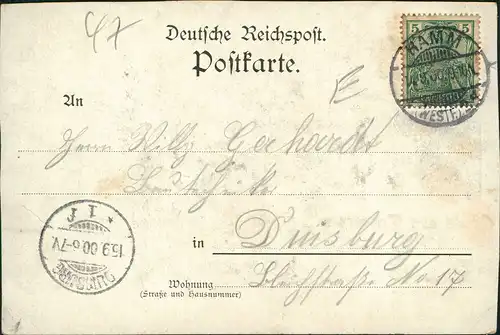 47
Deutsche Reichspost.
Postkarte.
5 5
HAMM
(WESTF.)
An
Herrn Willy Gerhardt
Bautechniker
in Duisburg
Wohnung
(Straße und Hausnummer)
No 17
DUISBURG
15.9.00.6-7V.
* 1 f